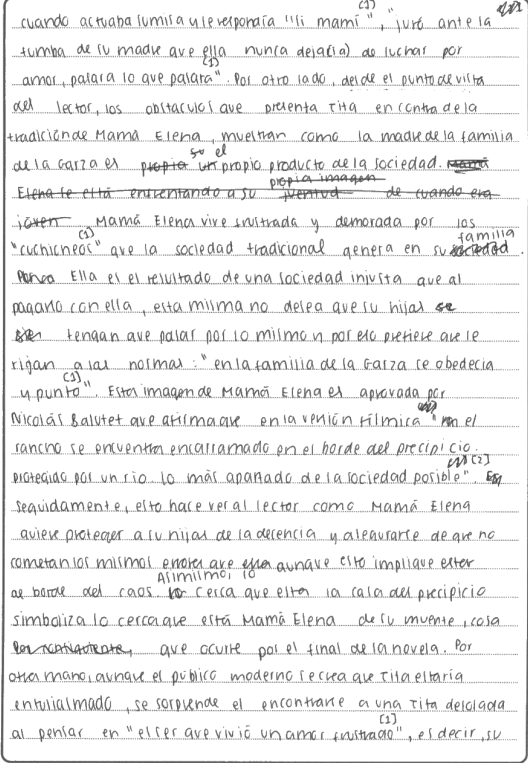 cuando actuaba sumisa y le respondía "si mami"[1], "juró ante la
tumba de su madre que ella nunca dejaría) de luchar por
amor, pasara lo que pasara"[1]. Por otro lado, desde el punto de vista
del lector, los obstaculos que presenta Tita en contra de la
tradición de Mamá Elena, muestran como la madre de la familia
de la Garza es su el propio producto de la sociedad.
propia imagen
Elena se está enfrentando a su juventud de cuando era
joven Mamá Elena vive frustrada y demorada por los
"cuchicheos"[1] que la sociedad tradicional genera en su familia.
Ella es el resultado de una sociedad injusta que al
pagarlo con ella, esta misma no desea que su hijas se
tengan que pasar por lo mismo y por eso prefiere que se
rijan a las normas: "en la familia de la Garza se obedecia
y punto"[1]. Esta imagen de Mamá Elena es aprovada por
Nicolás Balutet que afirma que en la versión fílmica "en el
rancho se encuentra encarramado en el borde del precipicio.
protegido por un rio. lo más apartado de la sociedad posible"[2].
Seguidamente, esto hace ver al lector como Mamá Elena
quiere proteger a su hijas de la decencia y asegurarse de que no
cometan los mismos errores que ella aunque esto implique estar
al borde del caos. Asimismo, lo cerca que esta la casa del precipicio
simboliza lo cerca que está Mamá Elena de su muerte, cosa
que ocurre por el final de la novela. Por
otra mano, aunque el público moderno se crea que Tita estaría
entusiasmado, se sorprende el encontrarse a una Tita desolada
al pensar en "el ser que vivió un amor frustrado"[1], es decir, su